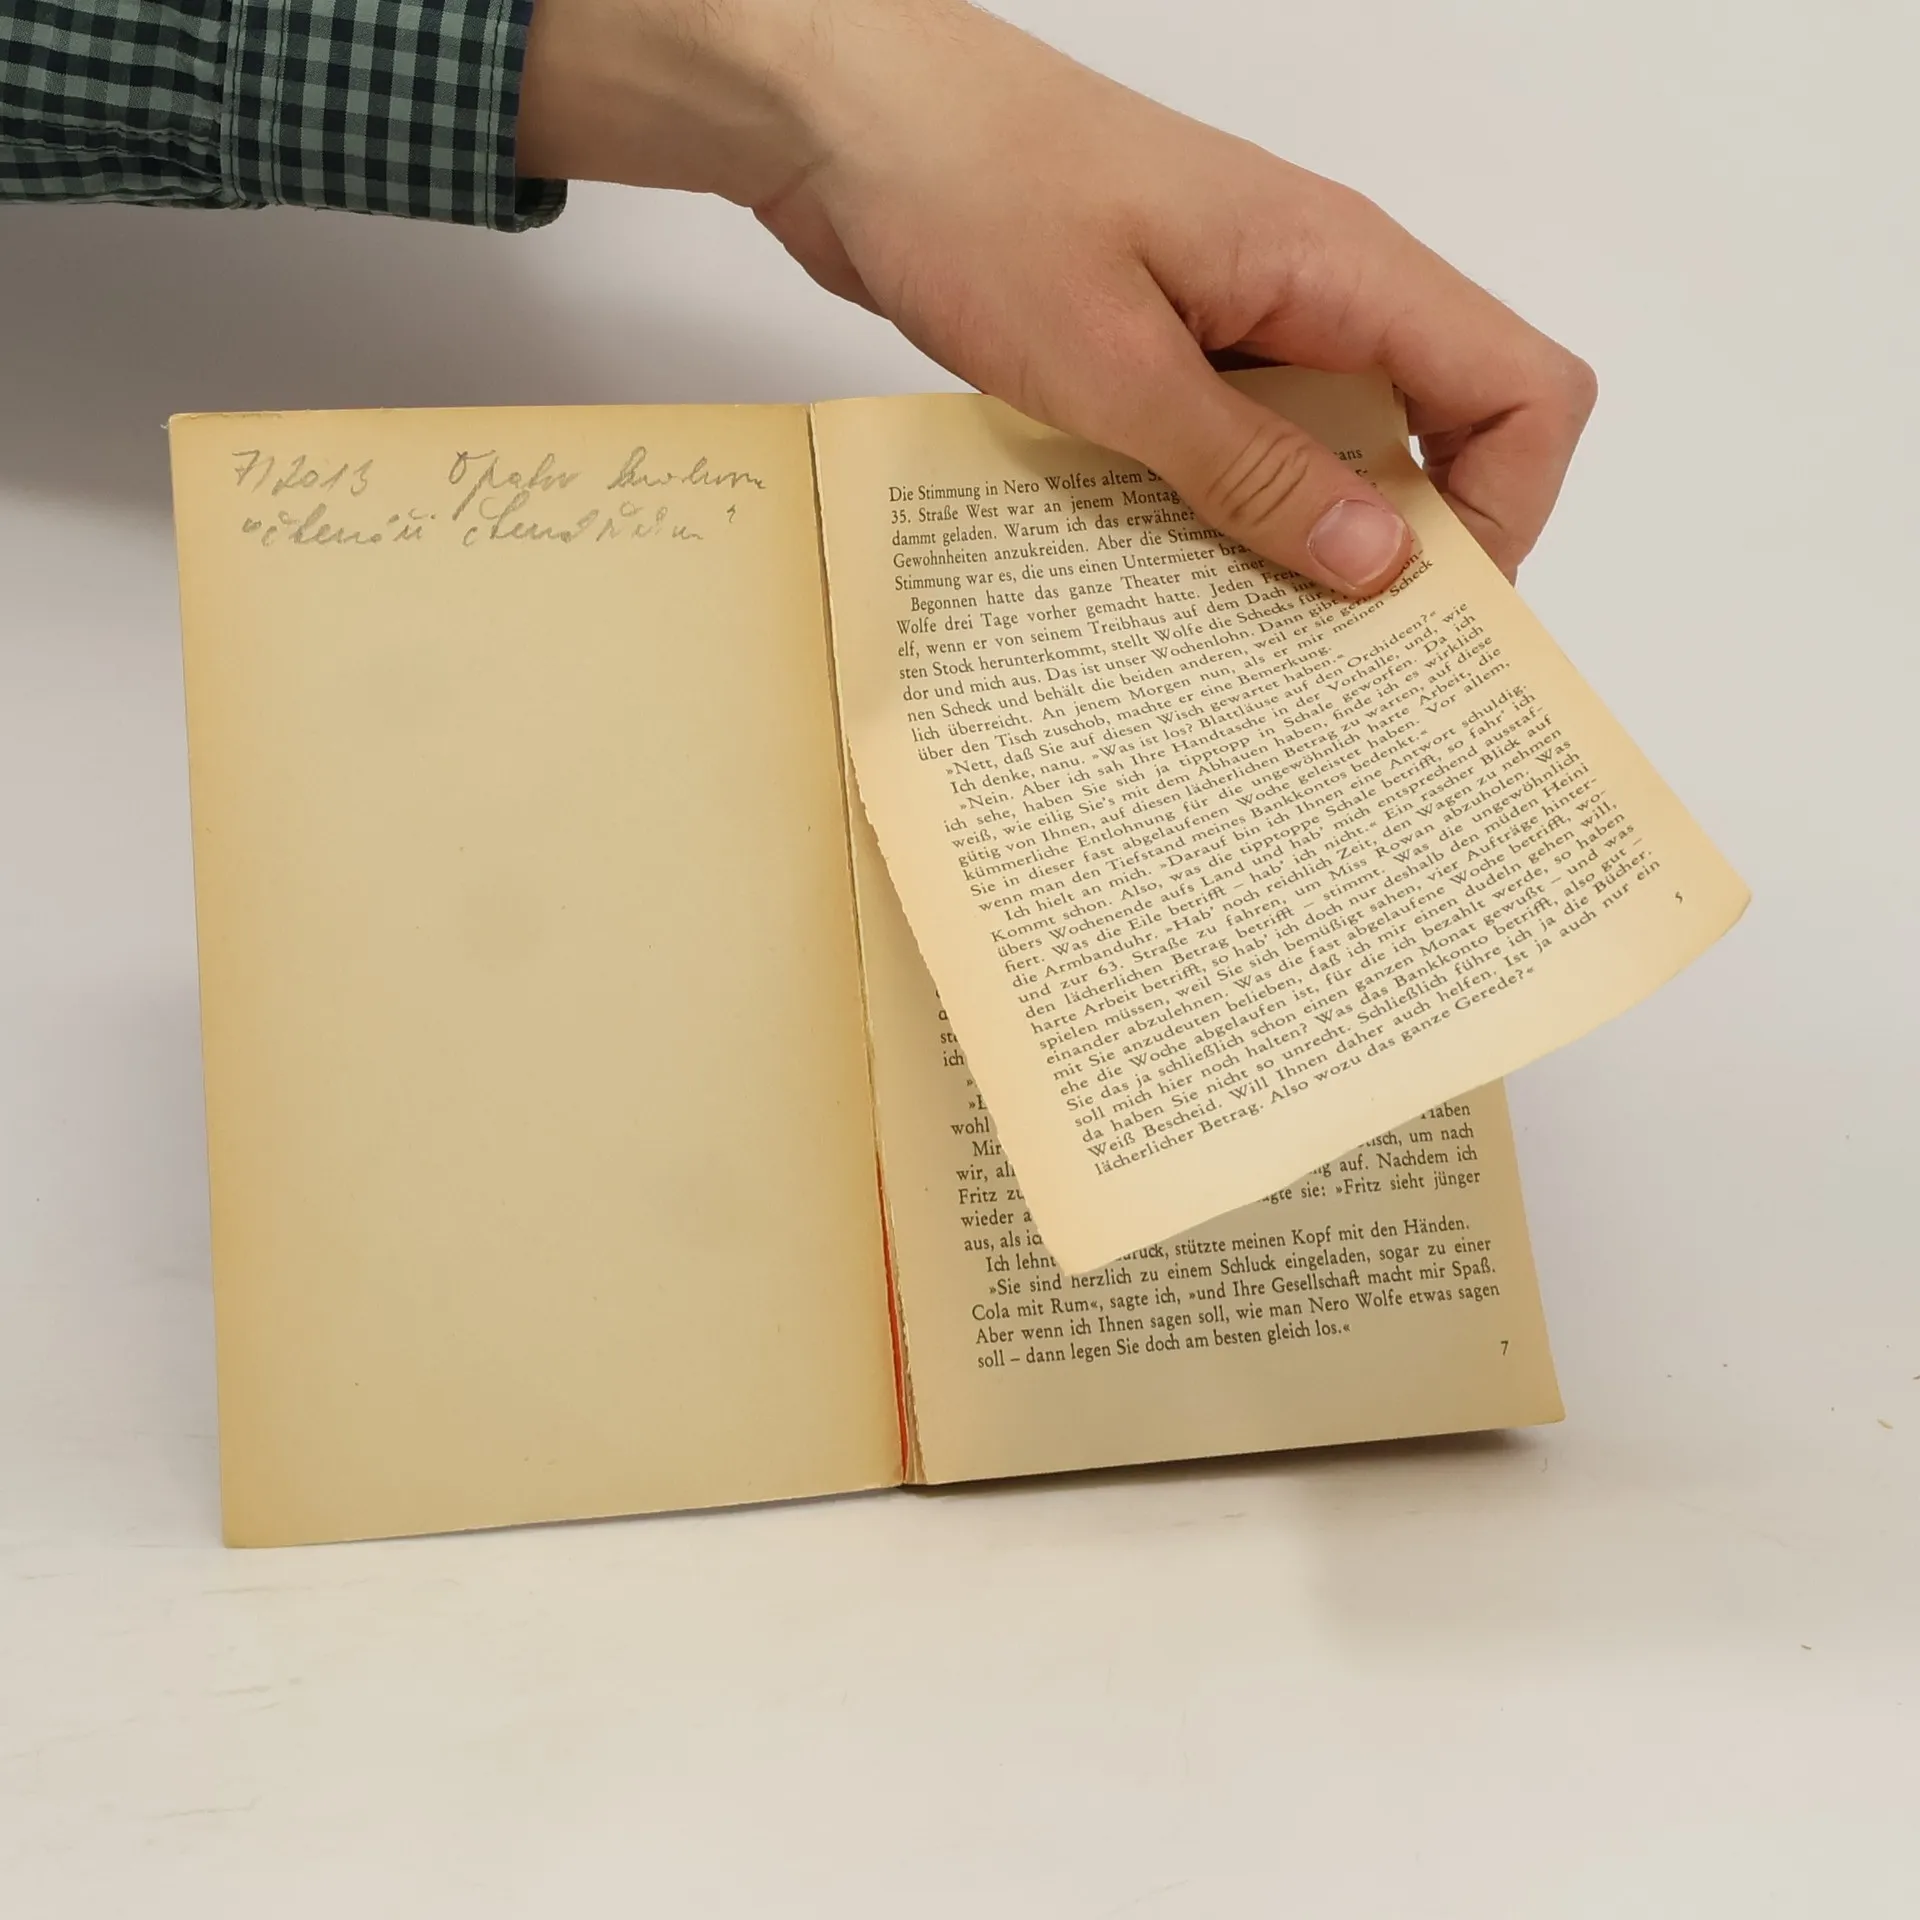 7/2013
Die Stimmung in Nero Wolfes altem
35. Straße West war an jenem Montag
dammt geladen. Warum ich das erwähne?
Gewohnheiten anzukreiden. Aber die
Stimmung war es, die uns einen Untermieter
Begonnen hatte das ganze Theater mit einer
Wolfe drei Tage vorher gemacht hatte. Jeden
elf, wenn er von seinem Treibhaus auf dem Dach
sten Stock herunterkommt, stellt Wolfe die Schecks für
dor und mich aus. Das ist unser Wochenlohn. Dann gibt
nen Scheck und behält die beiden anderen, weil er sie meinen Scheck
lich überreicht. An jenem Morgen nun, als er mir
über den Tisch zuschob, machte er eine Bemerkung.
»Nett, daß Sie auf diesen Wisch gewartet haben.«
Ich denke, nanu. »Was ist los? Blattläuse auf den Orchideen?«
»Nein. Aber ich sah Ihre Handtasche in der Vorhalle, und, wie
ich sehe, haben Sie sich ja tipptopp in Schale geworfen. Da ich
weiß, wie eilig Sie's mit dem Abhauen haben, finde ich es wirklich
gütig von Ihnen, auf diesen lächerlichen Betrag zu warten, auf diese
kümmerliche Entlohnung für die ungewöhnlich harte Arbeit, die
Sie in dieser fast abgelaufenen Woche geleistet haben. Vor allem,
wenn man den Tiefstand meines Bankkontos bedenkt.«
Ich hielt an mich. »Darauf bin ich Ihnen eine Antwort schuldig.
Kommt schon. Also, was die tiptoppe Schale betrifft, so fahr' ich
übers Wochenende aufs Land und hab' mich entsprechend ausstaf-
fiert. Was die Eile betrifft – hab' ich nicht.« Ein rascher Blick auf
die Armbanduhr. »Hab' noch reichlich Zeit, den Wagen zu nehmen
und zur 63. Straße zu fahren, um Miss Rowan abzuholen. Was
den lächerlichen Betrag betrifft – stimmt. Was die ungewöhnlich
harte Arbeit betrifft, so hab' ich doch nur deshalb den müden Heini
spielen müssen, weil Sie sich bemüßigt sahen, vier Aufträge hinter-
einander abzulehnen. Was die fast abgelaufene Woche betrifft, wo-
mit Sie anzudeuten belieben, daß ich mir einen dudeln gehen will,
ehe die Woche abgelaufen ist, für die ich bezahlt werde, so haben
Sie das ja schließlich schon einen ganzen Monat gewußt – und was
soll mich hier noch halten? Was das Bankkonto betrifft, also gut –
da haben Sie nicht so unrecht. Schließlich führe ich ja die Bücher.
Weiß Bescheid. Will Ihnen daher auch helfen. Ist ja auch nur ein
lächerlicher Betrag. Also wozu das ganze Gerede?«
5
ich
wohl
Mir
wir, um nach
Fritz auf. Nachdem ich
wieder sie: »Fritz sieht jünger
aus, als
Ich lehnte stützte meinen Kopf mit den Händen.
»Sie sind herzlich zu einem Schluck eingeladen, sogar zu einer
Cola mit Rum«, sagte ich, »und Ihre Gesellschaft macht mir Spaß.
Aber wenn ich Ihnen sagen soll, wie man Nero Wolfe etwas sagen
soll – dann legen Sie doch am besten gleich los.«
7